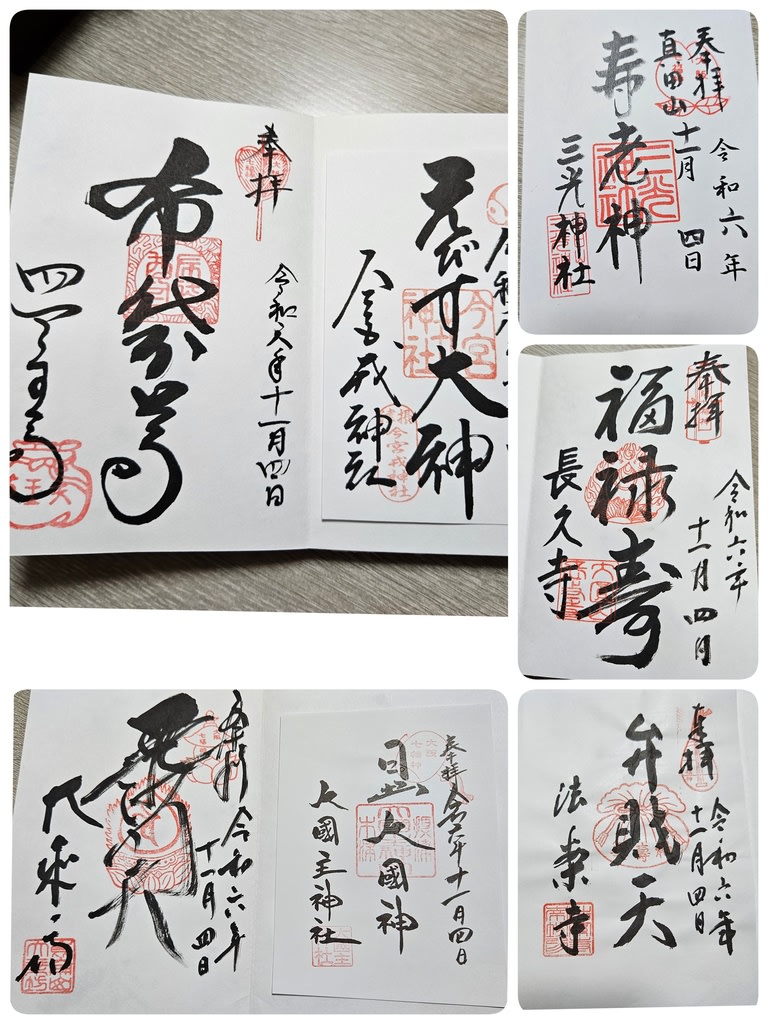 奉拝
令和六年十一月四日
布袋尊
四天王寺
ゑびす大神
今宮戎神社
今宮戎神社
奉拝
令和六年
十一月四日
真田山
寿老神
三光神社
三光
奉拝
令和六年
十一月四日
福禄寿
長久寺
奉拝
令和六年
十一月四日
毘沙門天
大乗坊
奉拝
令和六年十一月四日
日出大國神
大國主神社
奉拝
令和六年
十一月四日
弁財天
法案寺